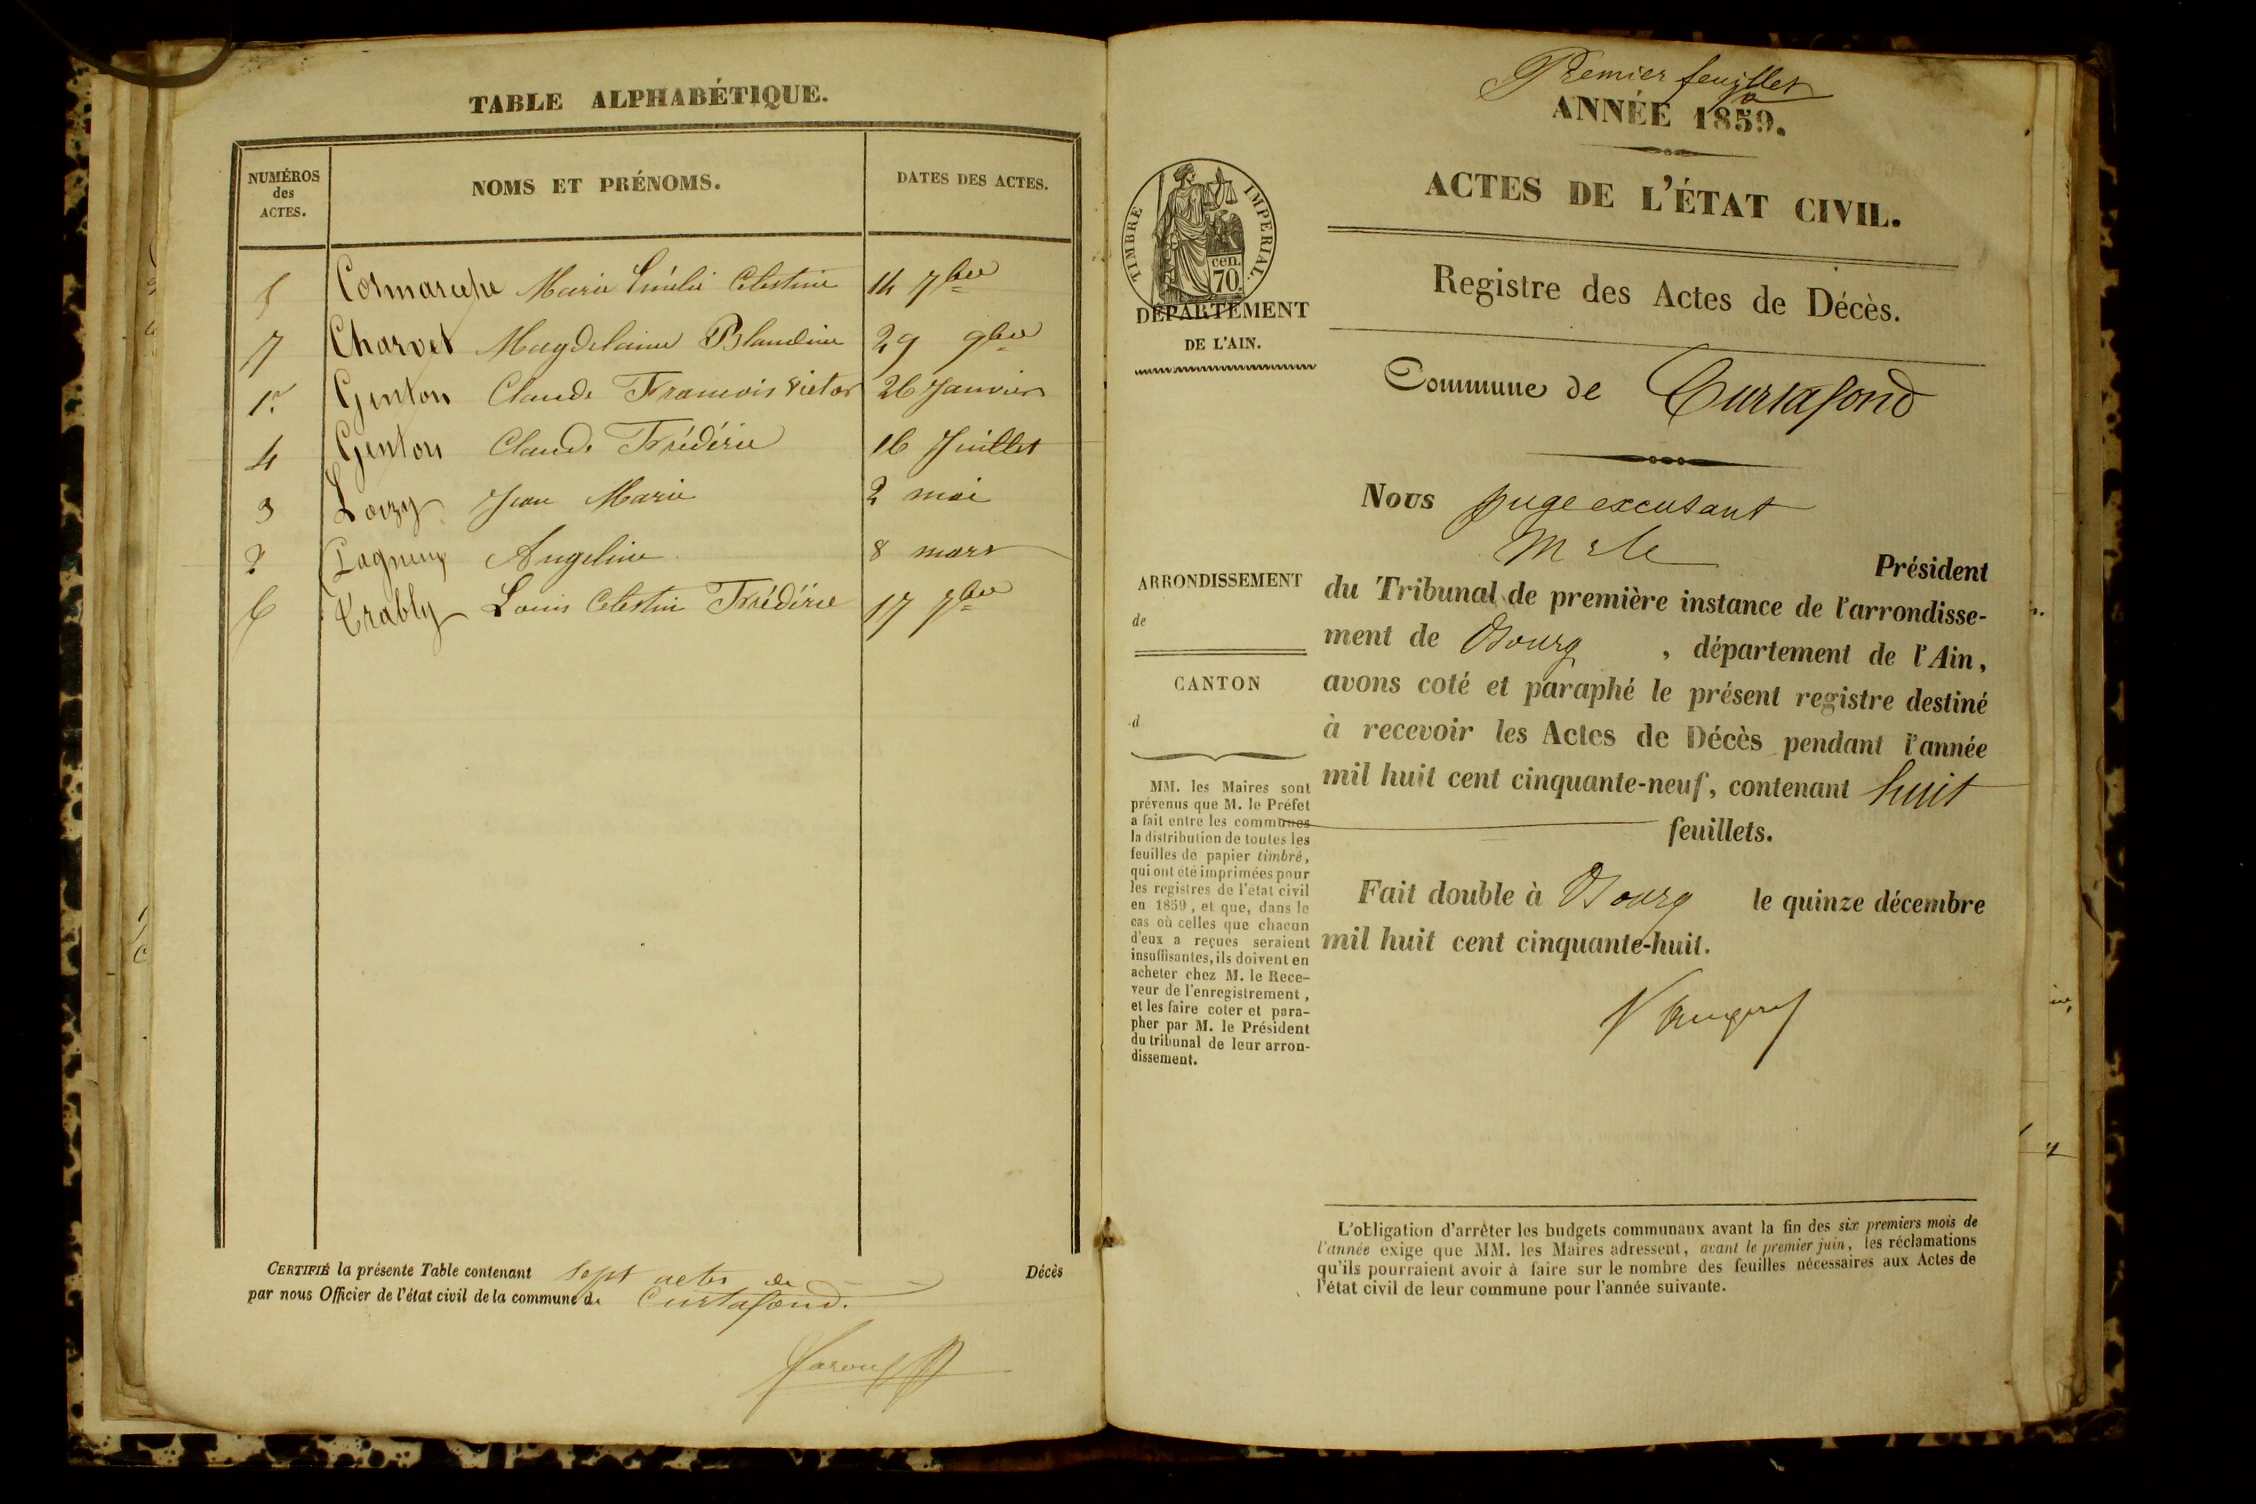 TABLE ALPHABÉTIQUE.
NUMÉROS
des
ACTES.
NOMS ET PRÉNOMS.
DATES DES ACTES.
5 Marie Célestine 14 7bre
7 Charvet Magdelaine Blandine 29 9bre
1er Genton Claude Francois Victor 26 Janvier
4 Genton Claude Frédéric 16 Juillet
3 Loizy Jean Marie 2 mai
2 Angeline 8 mars
6 Louis Celestin Frédéric 17 7bre
CERTIFIÉ la présente Table contenant sept actes de Décès
par nous Officier de l'état civil de la commune de Curtafond.
Premier feuillet
ANNÉE 1859.
ACTES DE L'ÉTAT CIVIL.
TIMBRE IMPERIAL
cen.
70
DÉPARTEMENT
DE L'AIN.
Registre des Actes de Décès.
Commune de Curtafond
Nous juge excusant
M le Président
du Tribunal de première instance de l'arrondisse-
ment de Bourg, département de l'Ain,
avons coté et paraphé le présent registre destiné
à recevoir les Actes de Décès pendant l'année
mil huit cent cinquante-neuf, contenant huit
feuillets.
Fait double à Bourg le quinze décembre
mil huit cent cinquante-huit.
ARRONDISSEMENT
de
CANTON
d
MM. les Maires sont
prévenus que M. le Préfet
a fait entre les communes
la distribution de toutes les
feuilles de papier timbré,
qui ont été imprimées pour
les registres de l'état civil
en 1859, et que, dans le
cas où celles que chacun
d'eux a reçues seraient
insuffisantes, ils doivent en
acheter chez M. le Rece-
veur de l'enregistrement,
et les faire coter et para-
pher par M. le Président
du tribunal de leur arron-
dissement.
L'obligation d'arrêter les budgets communaux avant la fin des six premiers mois de
l'année exige que MM. les Maires adressent, avant le premier juin, les réclamations
qu'ils pourraient avoir à faire sur le nombre des feuilles nécessaires aux Actes de
l'état civil de leur commune pour l'année suivante.